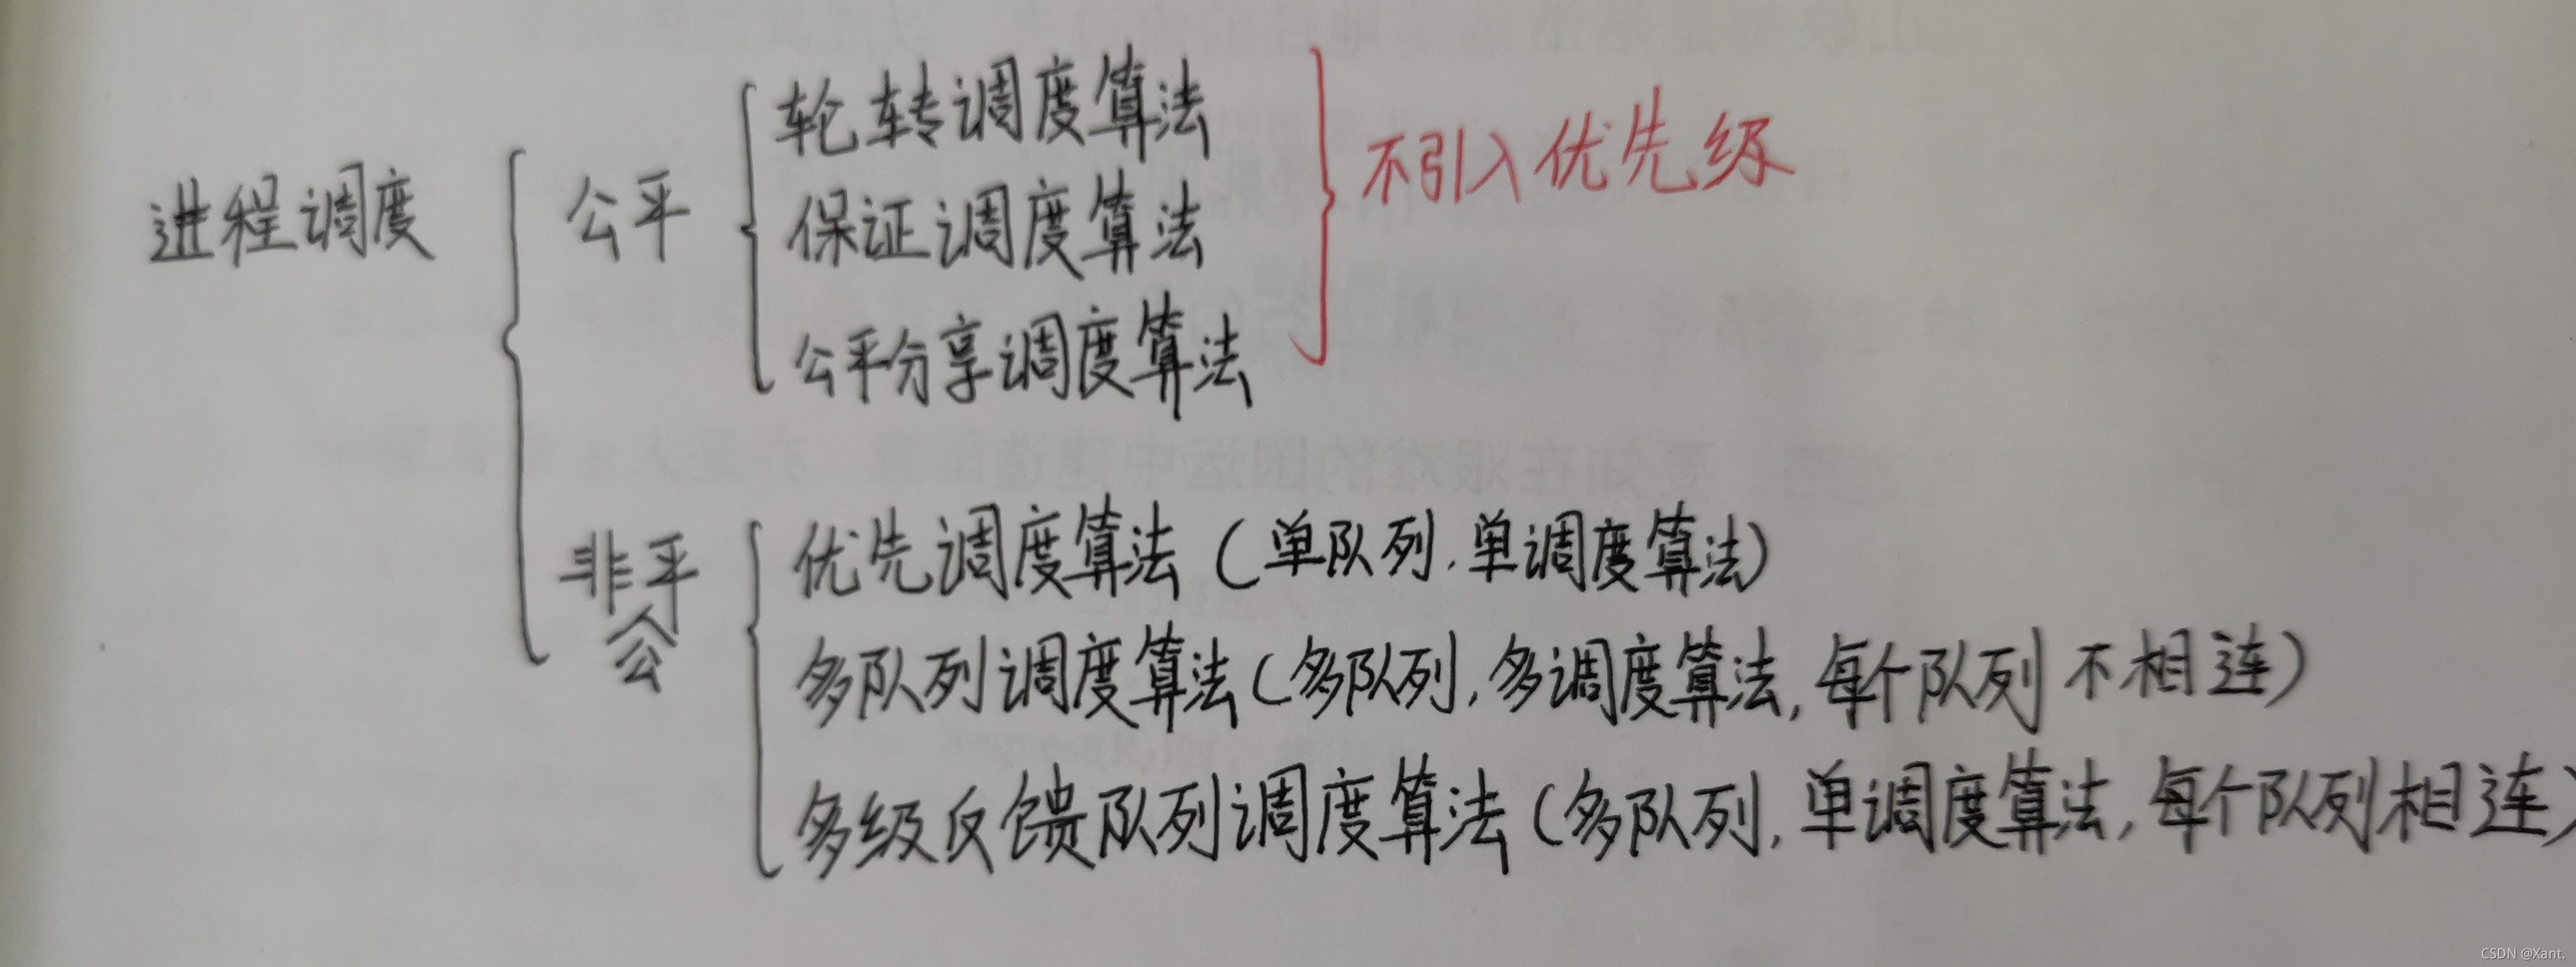 进程调度
公平
轮转调度算法
保证调度算法
公平分享调度算法
不引入优先级
非公平
优先调度算法（单队列，单调度算法）
多队列调度算法（多队列，多调度算法，每个队列不相连）
多级反馈队列调度算法（多队列，单调度算法，每个队列相连）
CSDN @Xant.